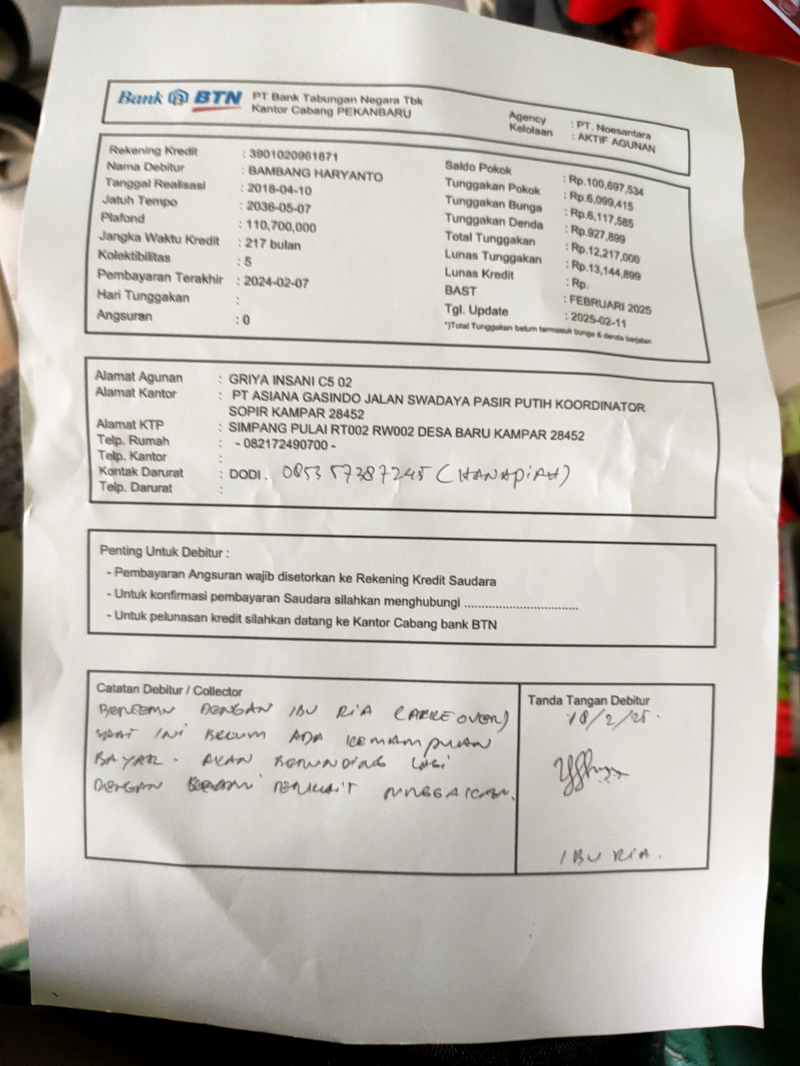 Bank BTN PT Bank Tabungan Negara Tbk
Kantor Cabang PEKANBARU
Agency : PT. Noesantara
Kelolaan : AKTIF AGUNAN
Rekening Kredit : 3901020961871
Nama Debitur : BAMBANG HARYANTO
Tanggal Realisasi : 2018-04-10
Jatuh Tempo : 2036-05-07
Plafond : 110,700,000
Jangka Waktu Kredit : 217 bulan
Kolektibilitas : 5
Pembayaran Terakhir : 2024-02-07
Hari Tunggakan :
Angsuran : 0
Saldo Pokok : Rp.100,697,534
Tunggakan Pokok : Rp.6,099,415
Tunggakan Bunga : Rp.6,117,585
Tunggakan Denda : Rp.927,899
Total Tunggakan : Rp.12,217,000
Lunas Tunggakan : Rp.13,144,899
Lunas Kredit : Rp.
BAST : FEBRUARI 2025
Tgl. Update : 2025-02-11
*)Total Tunggakan belum termasuk bunga & denda berjalan
Alamat Agunan : GRIYA INSANI C5 02
Alamat Kantor : PT ASIANA GASINDO JALAN SWADAYA PASIR PUTIH KOORDINATOR
SOPIR KAMPAR 28452
Alamat KTP : SIMPANG PULAI RT002 RW002 DESA BARU KAMPAR 28452
Telp. Rumah : - 082172490700 -
Telp. Kantor :
Kontak Darurat : DODI . 085357387245 (HANAPIAH)
Telp. Darurat :
Penting Untuk Debitur :
- Pembayaran Angsuran wajib disetorkan ke Rekening Kredit Saudara
- Untuk konfirmasi pembayaran Saudara silahkan menghubungi ................................
- Untuk pelunasan kredit silahkan datang ke Kantor Cabang bank BTN
Catatan Debitur / Collector
DENGAN IBU RIA
SAAT INI BELUM ADA KEMAMPUAN
BAYAR. AKAN BERUNDING LAGI
DENGAN TERKAIT
Tanda Tangan Debitur
18/2/25.
IBU RIA.